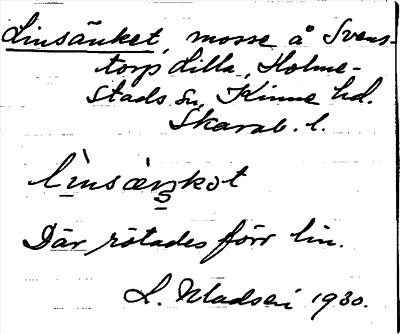 Linsänket, mosse å Svens-
torp Lilla, Holme-
stads sn, Kinne hd.
Skarab. l.
lìnsæŋkət
Där rötades förr lin.
L. Madsen 1930.